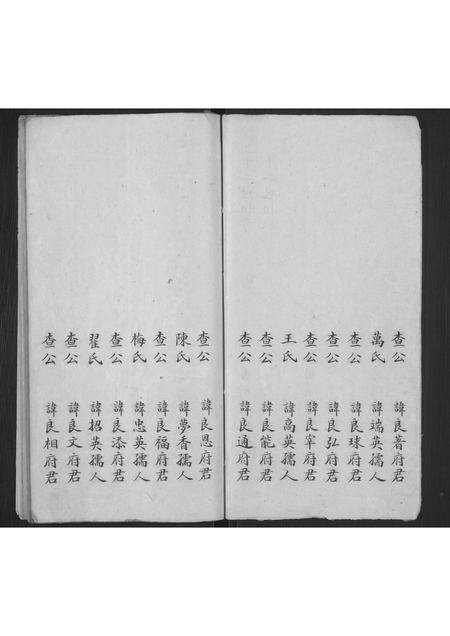 查公 諱良著府君
萬氏 諱端英孺人
查公 諱良球府君
查公 諱良弘府君
查公 諱良寧府君
王氏 諱高英孺人
查公 諱良能府君
查公 諱良通府君
查公 諱良恩府君
陳氏 諱夢香孺人
查公 諱良福府君
梅氏 諱忠英孺人
查公 諱良添府君
翟氏 諱招英孺人
查公 諱良文府君
查公 諱良相府君